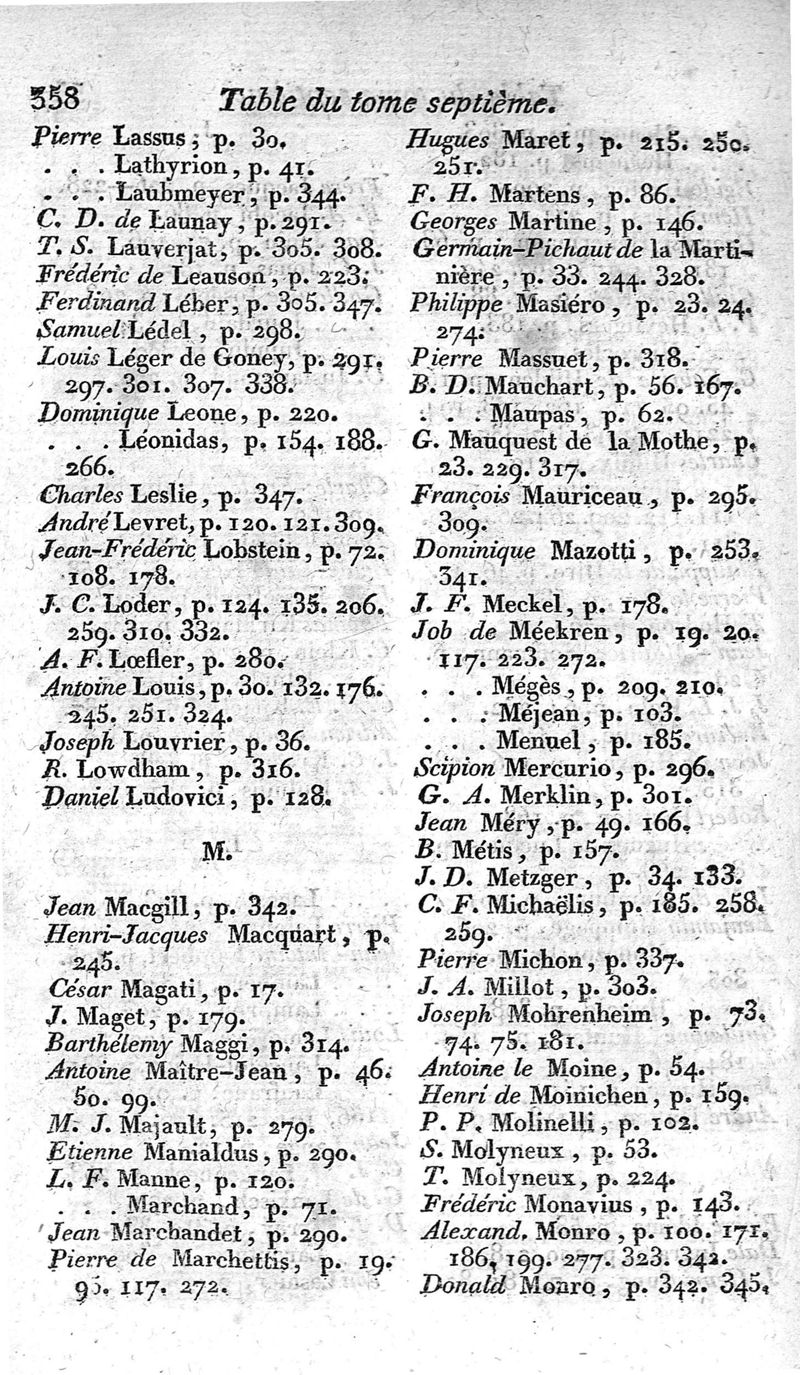 358 Table du tome septième.
Pierre Lassus, p. 30.
. . . Lathyrion, p. 41.
. . . Laubmeyer, p. 344.
C. D. de Launay, p. 291.
T. S. Lauverjat, p. 305. 308.
Frédéric de Leauson, p. 223.
Ferdinand Léber, p. 305. 347.
Samuel Lédel, p. 298.
Louis Léger de Goney, p. 291.
297. 301. 307. 338.
Dominique Leone, p. 220.
. . . Léonidas, p. 154. 188.
266.
Charles Leslie, p. 347.
André Levret, p. 120. 121. 309.
Jean-Frédéric Lobstein, p. 72.
108. 178.
J. C. Loder, p. 124. 135. 206.
259. 310. 332.
A. F. Lœfler, p. 280.
Antoine Louis, p. 30. 132. 176.
245. 251. 324.
Joseph Louvrier, p. 36.
R. Lowdham, p. 316.
Daniel Ludovici, p. 128.
M.
Jean Macgill, p. 342.
Henri-Jacques Macquart, p.
245.
César Magati, p. 17.
J. Maget, p. 179.
Barthélemy Maggi, p. 314.
Antoine Maître-Jean, p. 46.
50. 99.
M. J. Majault, p. 279.
Etienne Manialdus, p. 290.
L. F. Manne, p. 120.
. . . Marchand, p. 71.
Jean Marchandet, p. 290.
Pierre de Marchettis, p. 19.
95. 117. 272.
Hugues Maret, p. 215. 250.
251.
F. H. Martens, p. 86.
Georges Martine, p. 146.
Germain-Pichaut de la Marti-
nière, p. 33. 244. 328.
Philippe Masiéro, p. 23. 24.
274.
Pierre Massuet, p. 318.
B. D. Mauchart, p. 56. 167.
. . . Maupas, p. 62.
G. Mauquest de la Mothe, p.
23. 229. 317.
François Mauriceau, p. 295.
309.
Dominique Mazotti, p. 253.
341.
J. F. Meckel, p. 178.
Job de Méekren, p. 19. 20.
117. 223. 272.
. . . Mégès, p. 209. 210.
. . . Méjean, p. 103.
. . . Menuel, p. 185.
Scipion Mercurio, p. 296.
G. A. Merklin, p. 301.
Jean Méry, p. 49. 166.
B. Métis, p. 157.
J. D. Metzger, p. 34. 133.
C. F. Michaëlis, p. 185. 258.
259.
Pierre Michon, p. 337.
J. A. Millot, p. 303.
Joseph Mohrenheim, p. 73.
74. 75. 181.
Antoine le Moine, p. 54.
Henri de Moinichen, p. 159.
P. P. Molinelli, p. 102.
S. Molyneux, p. 53.
T. Molyneux, p. 224.
Frédéric Monavius, p. 143.
Alexand. Monro, p. 100. 171.
186. 199. 277. 323. 342.
Donald Monro, p. 342. 345.